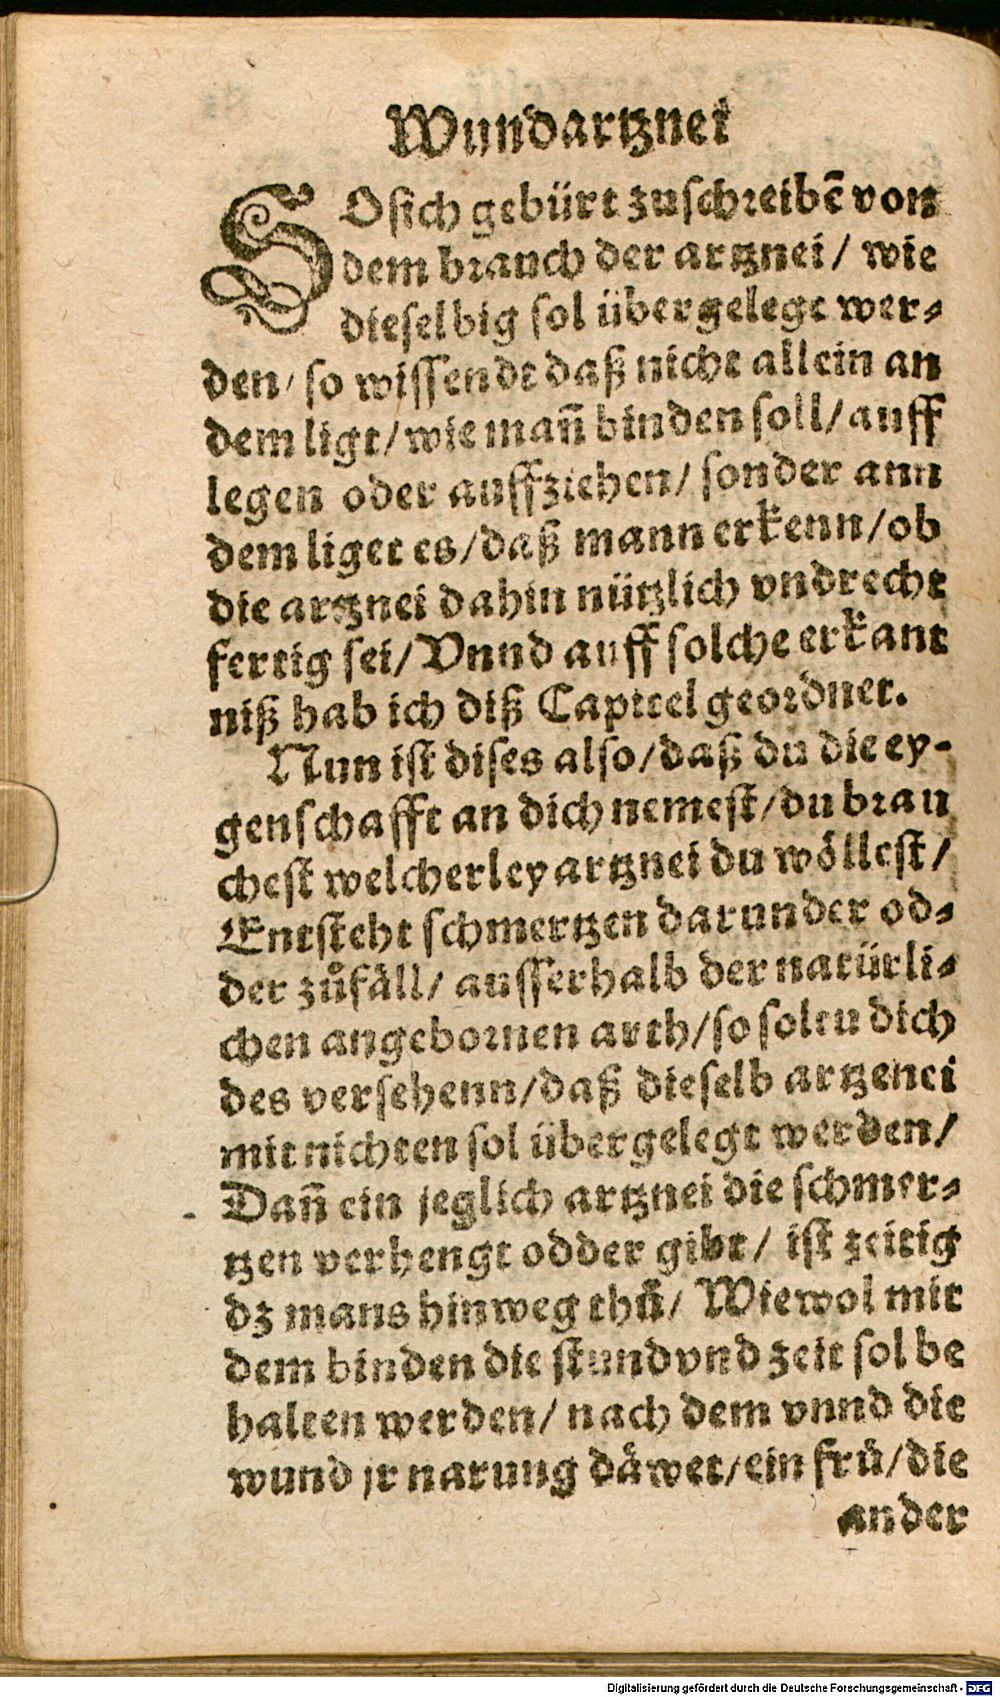 Wundartznei
SO sich gebürt zuschreibē von
dem brauch der artznei / wie
dieselbig sol übergelegt wer⸗
den / so wissendt daß nicht allein an
dem ligt / wie mañ binden soll / auff
legen oder auffziehen / sonder ann
dem liget es / daß mann erkenn / ob
die artznei dahin nützlich vnd recht
fertig sei / Vnnd auff solche erkant
niß hab ich diß Capittel geordnet.
Nun ist dises also / daß du die ey⸗
genschafft an dich nemest / du brau
chest welcherley artznei du wöllest /
Entsteht schmertzen darunder od⸗
der zůfäll / ausserhalb der natürli⸗
chen angebornen arth / so soltu dich
des versehenn / daß dieselb artzenei
mit nichten sol übergelegt werden /
Dañ ein jeglich artznei die schmer⸗
tzen verhengt odder gibt / ist zeitig
dz mans hinweg thů / Wiewol mit
dem binden die stund vnd zeit sol be
halten werden / nach dem vnnd die
wund jr narung däwet / ein frü / die
ander
Digitalisierung gefördert durch die Deutsche Forschungsgemeinschaft - DFG